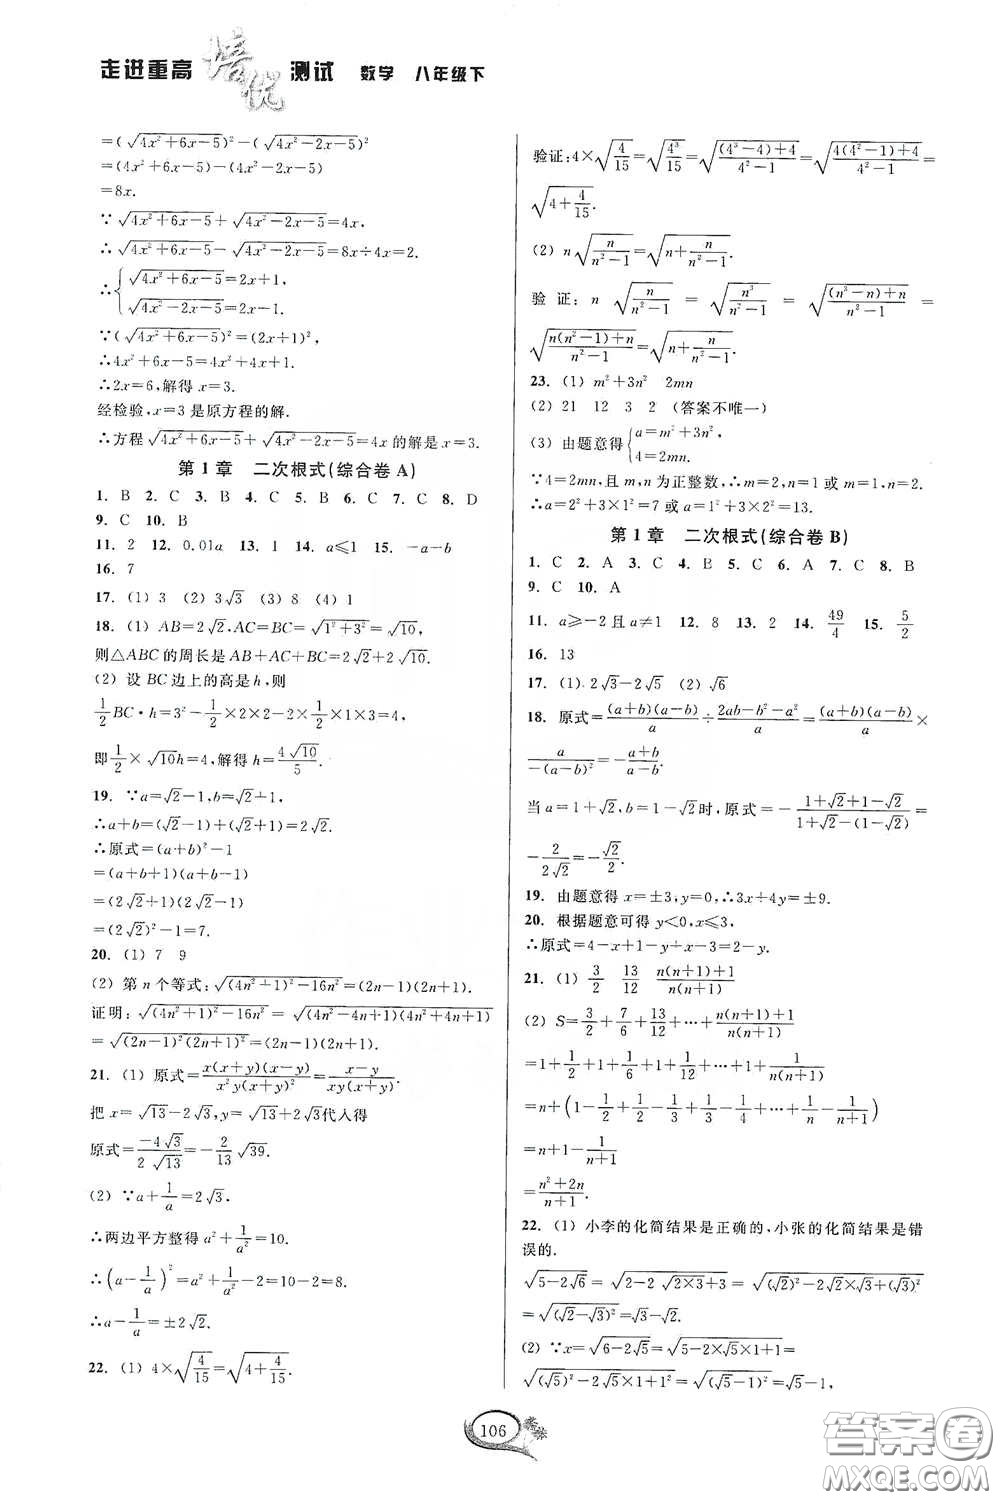 走进重高 培优 测试 数学 八年级下
=(√(4x²+6x-5))²-(√(4x²-2x-5))²
=(4x²+6x-5)-(4x²-2x-5)
=8x.
∵√(4x²+6x-5)+√(4x²-2x-5)=4x,
∴√(4x²+6x-5)-√(4x²-2x-5)=8x÷4x=2.
∴{√(4x²+6x-5)=2x+1,
√(4x²-2x-5)=2x-1.
∵(√(4x²+6x-5))²=(2x+1)²,
∴4x²+6x-5=4x²+4x+1.
∴2x=6,解得 x=3.
经检验,x=3是原方程的解.
∴方程√(4x²+6x-5)+√(4x²-2x-5)=4x的解是x=3.
第1章 二次根式(综合卷A)
1. B 2. C 3. B 4. C 5. B 6. C 7. C 8. D
9. C 10. B
11. 2 12. 0.01a 13. 1 14. a≤1 15. -a-b
16. 7
17. (1) 3 (2) 3√3 (3) 8 (4) 1
18. (1) AB=2√2,AC=BC=√(1²+3²)=√10,
则△ABC的周长是AB+AC+BC=2√2+2√10.
(2) 设BC边上的高是h,则
1/2 BC·h=3²-1/2×2×2-2×1/2×1×3=4,
即1/2×√10h=4,解得h=4√10/5.
19. ∵a=√2-1,b=√2+1,
∴a+b=(√2-1)+(√2+1)=2√2.
∴原式=(a+b)²-1
=(a+b+1)(a+b-1)
=(2√2+1)(2√2-1)
=(2√2)²-1=7.
20. (1) 7 9
(2) 第n个等式:√((4n²+1)²-16n²)=(2n-1)(2n+1).
证明:√((4n²+1)²-16n²)=√((4n²-4n+1)(4n²+4n+1))
=√((2n-1)²(2n+1)²)=(2n-1)(2n+1).
21. (1) 原式=x(x+y)(x-y)/(x²y(x+y)²)=(x-y)/(xy(x+y)).
把x=√13-2√3,y=√13+2√3代入得
原式=-4√3/(2√13)=-2/13 √39.
(2) ∵a+1/a=2√3,
∴两边平方整得a²+1/a²=10.
∴(a-1/a)²=a²+1/a²-2=10-2=8.
∴a-1/a=±2√2.
22. (1) 4×√(4/15)=√(4+4/15).
验证:4×√(4/15)=√(4³/15)=√(((4³-4)+4)/(4²-1))=√((4(4²-1)+4)/(4²-1))=
√(4+4/15).
(2) n√(n/(n²-1))=√(n+n/(n²-1)).
验证:n√(n/(n²-1))=√(n³/(n²-1))=√(((n³-n)+n)/(n²-1))=
√((n(n²-1)+n)/(n²-1))=√(n+n/(n²-1)).
23. (1) m²+3n² 2mn
(2) 21 12 3 2 (答案不唯一)
(3) 由题意得{a=m²+3n²,
4=2mn.
∵4=2mn,且m,n为正整数,∴m=2,n=1或m=1,n=2.
∴a=2²+3×1²=7或a=1²+3×2²=13.
第1章 二次根式(综合卷B)
1. C 2. A 3. C 4. B 5. C 6. A 7. C 8. B
9. C 10. A
11. a≥-2且a≠1 12. 8 13. 2 14. 49/4 15. 5/2
16. 13
17. (1) 2√3-2√5 (2) √6
18. 原式=(a+b)(a-b)/a÷(2ab-b²-a²)/a=(a+b)(a-b)/a×
a/(-(a-b)²)=-(a+b)/(a-b).
当a=1+√2,b=1-√2时,原式=-(1+√2+1-√2)/(1+√2-(1-√2))=
-2/(2√2)=-√2/2.
19. 由题意得x=±3,y=0,∴3x+4y=±9.
20. 根据题意可得y<0,x≤3,
∴原式=4-x+1-y+x-3=2-y.
21. (1) 3/2 13/12 (n(n+1)+1)/(n(n+1))
(2) S=3/2+7/6+13/12+…+(n(n+1)+1)/(n(n+1))
=1+1/2+1+1/6+1+1/12+…+1+1/(n(n+1))
=n+(1-1/2+1/2-1/3+1/3-1/4+…+1/n-1/(n+1))
=n+1-1/(n+1)
=(n²+2n)/(n+1).
22. (1) 小李的化简结果是正确的,小张的化简结果是错
误的.
√(5-2√6)=√(2-2√(2×3)+3)=√((√2)²-2√2×√3+(√3)²)
=√((√2-√3)²)=√3-√2.
(2) ∵x=√(6-2√5)=√(5-2×√5×1+1)=
√((√5)²-2√5×1+1²)=√((√5-1)²)=√5-1,
106
答案圈
MXQE.COM